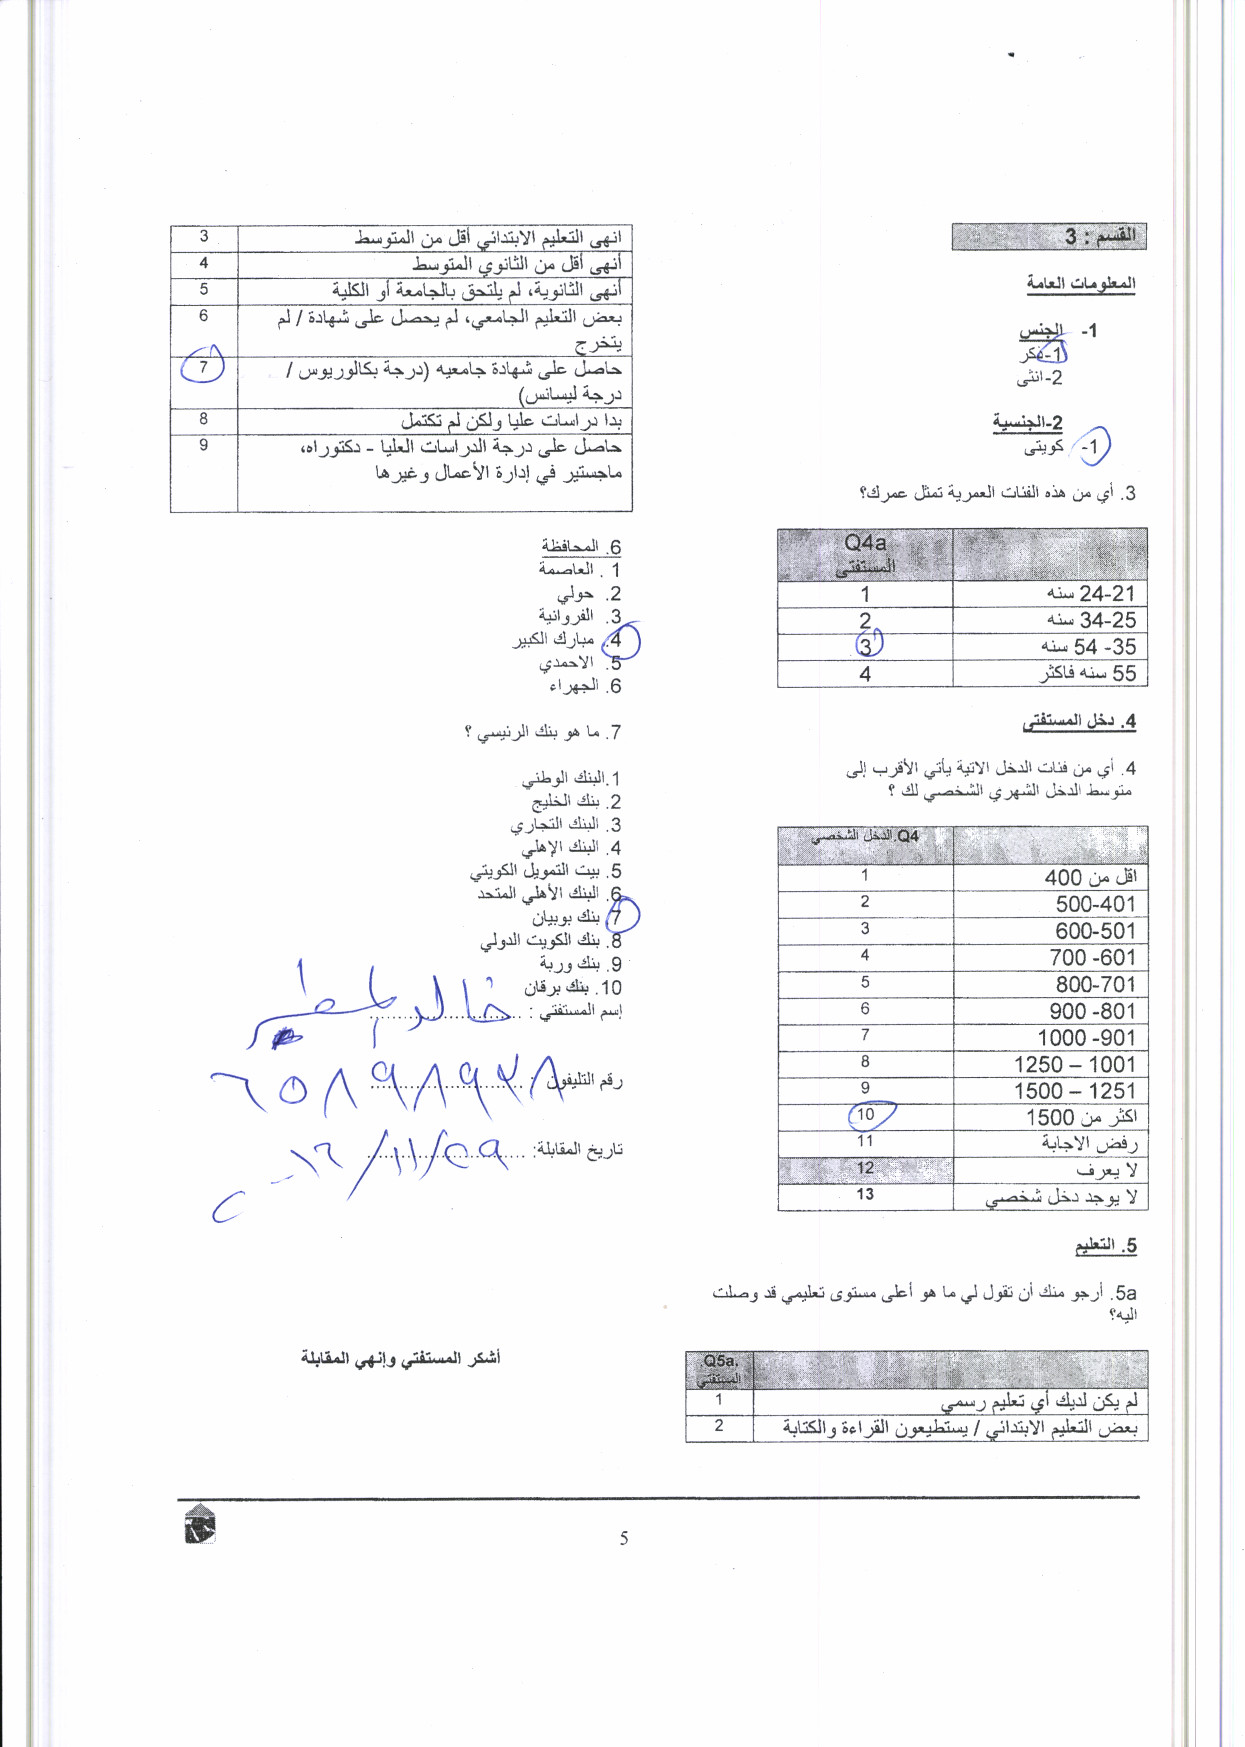 القسم : 3
المعلومات العامة
1- الجنس
1-ذكر
2-انثى
2-الجنسية
1- كويتى
3. أي من هذه الفئات العمرية تمثل عمرك؟
Q4a
المستفتى
24-21 سنه 1
34-25 سنه 2
35- 54 سنه 3
55 سنه فاكثر 4
4. دخل المستفتى
4. أي من فئات الدخل الاتية يأتي الأقرب إلى
متوسط الدخل الشهري الشخصي لك ؟
Q4.الدخل الشخصي
اقل من 400 1
500-401 2
600-501 3
700 -601 4
800-701 5
900 -801 6
1000 -901 7
1250 – 1001 8
1500 – 1251 9
اكثر من 1500 10
رفض الاجابة 11
لا يعرف 12
لا يوجد دخل شخصي 13
5. التعليم
5a. أرجو منك أن تقول لي ما هو أعلى مستوى تعليمي قد وصلت
اليه؟
Q5a.
المستفتي
لم يكن لديك أي تعليم رسمي 1
بعض التعليم الابتدائي / يستطيعون القراءة والكتابة 2
انهى التعليم الابتدائي أقل من المتوسط 3
أنهى أقل من الثانوي المتوسط 4
أنهى الثانوية، لم يلتحق بالجامعة أو الكلية 5
بعض التعليم الجامعي، لم يحصل على شهادة / لم 6
يتخرج
حاصل على شهادة جامعيه (درجة بكالوريوس / 7
درجة ليسانس)
بدا دراسات عليا ولكن لم تكتمل 8
حاصل على درجة الدراسات العليا - دكتوراه، 9
ماجستير في إدارة الأعمال وغيرها
6. المحافظة
1 . العاصمة
2. حولي
3. الفروانية
4. مبارك الكبير
5. الاحمدي
6. الجهراء
7. ما هو بنك الرئيسي ؟
1.البنك الوطني
2. بنك الخليج
3. البنك التجاري
4. البنك الإهلي
5. بيت التمويل الكويتي
6. البنك الأهلي المتحد
7. بنك بوبيان
8. بنك الكويت الدولي
9. بنك وربة
10. بنك برقان
إسم المستفتي : خالد
رقم التليفون :
تاريخ المقابلة: ٢٩/١١/٢٠١٦
أشكر المستفتي وإنهي المقابلة
5